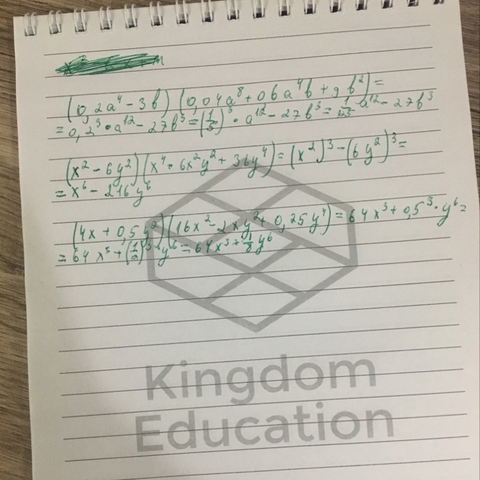 (0,2a⁴ - 3b) (0,04a⁸ + 0,6a⁴b + 9b²) =
= 0,2³ · a¹² - 27b³ = (1/5)³ · a¹² - 27b³ = 1/125 a¹² - 27b³
(x² - 6y²)(x⁴ + 6x²y² + 36y⁴) = (x²)³ - (6y²)³ =
= x⁶ - 216y⁶
(4x + 0,5y²)(16x² - 2xy² + 0,25y⁴) = 64x³ + 0,5³ · y⁶ =
= 64x³ + (1/2)³ · y⁶ = 64x³ + 1/8 y⁶
Kingdom
Education